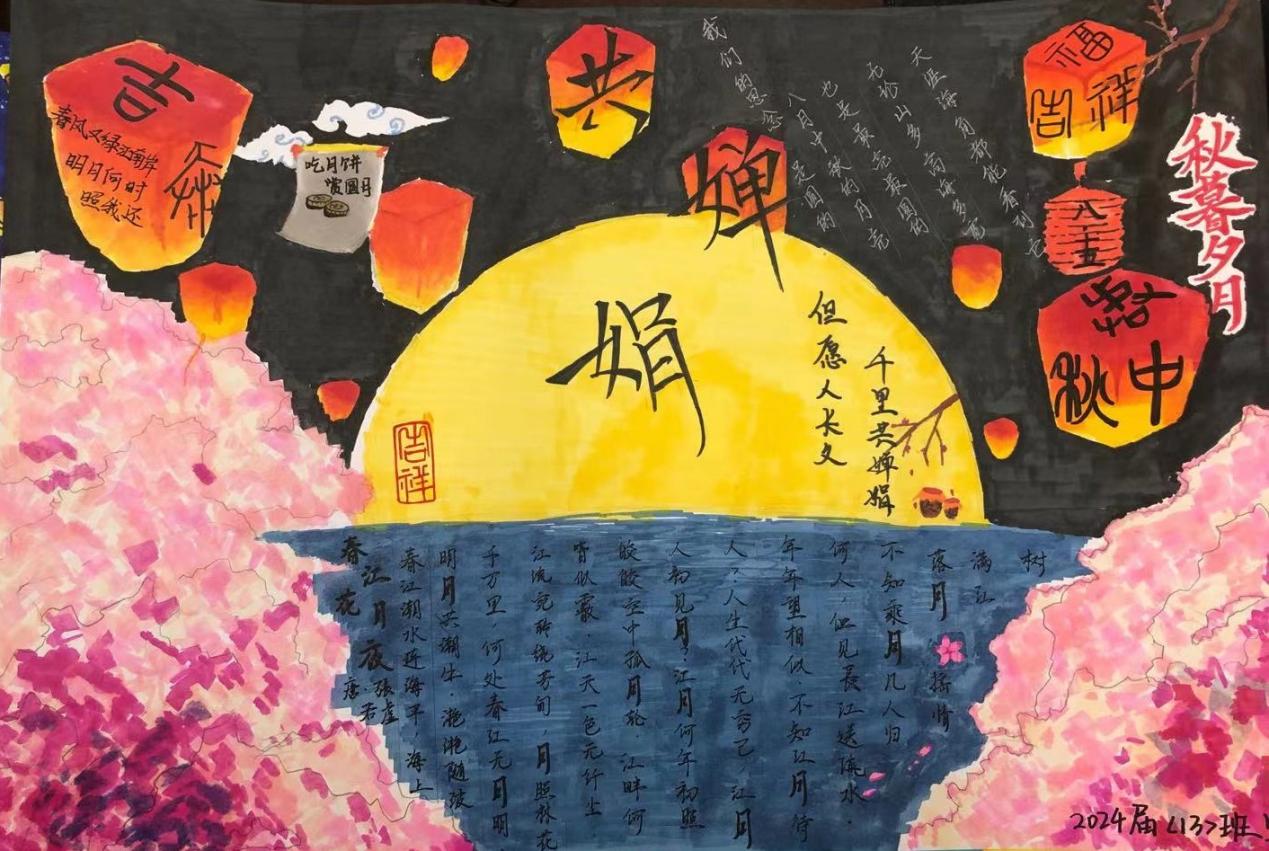 吉祥
春风又绿江南岸
明月何时
照我还
吃月饼
赏圆月
共
婵
娟
我们的思念是圆的
八月中秋的月亮
也是最亮最圆的
无论山多高海多宽
天涯海角都能看到它
福
吉祥
八十五
秋暮夕月
中秋
但愿人长久
千里共婵娟
吉祥
春江花月夜
唐·张若虚
春江潮水连海平，海上
明月共潮生。滟滟随波
千万里，何处春江无月明
江流宛转绕芳甸，月照林花
皆似霰。江天一色无纤尘
皎皎空中孤月轮。江畔何
人初见月，江月何年初照
人？人生代代无穷已，江月
年年望相似 不知江月待
何人，但见长江送流水。
不知乘月几人归
落月摇情
满江
树
2024届<13>班